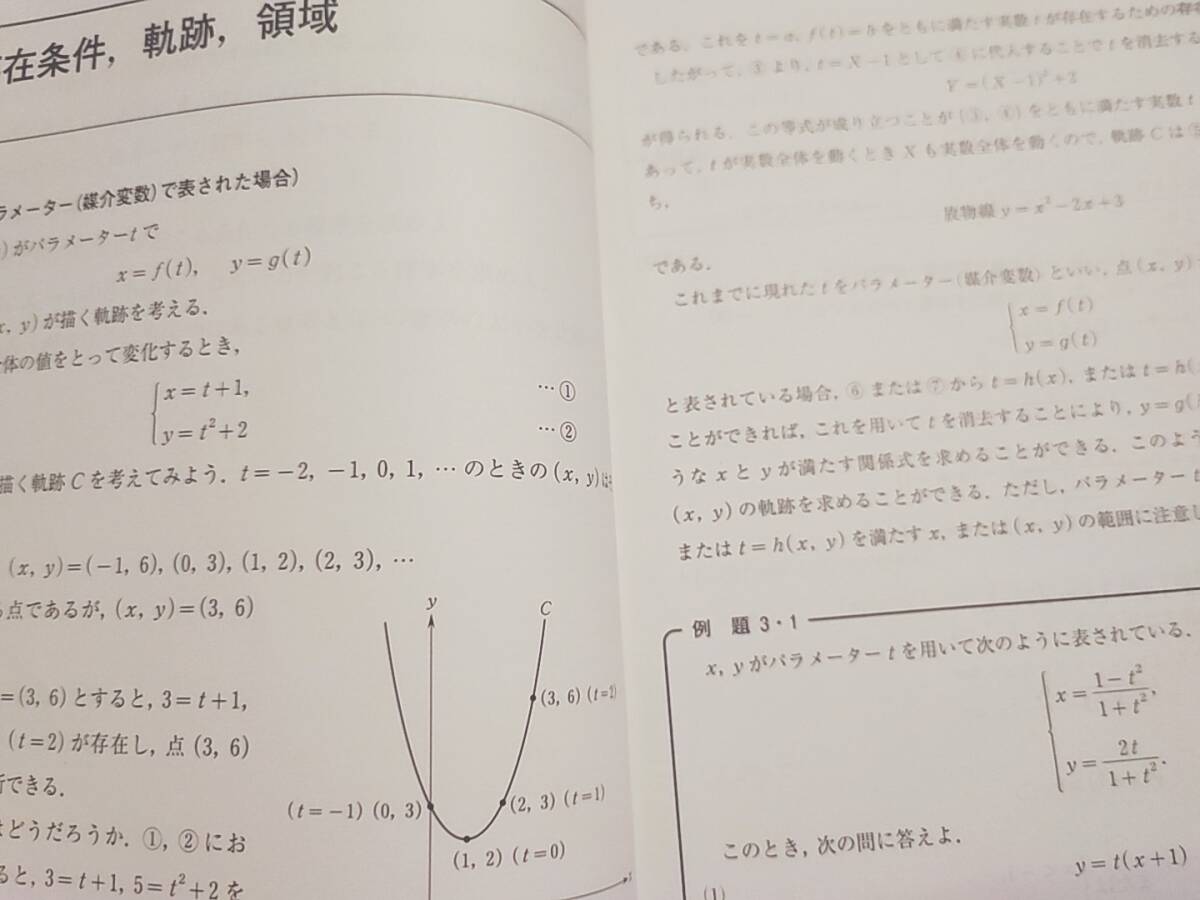 在条件，軌跡，領域
ラメーター(媒介変数)で表された場合)
)がパラメーターtで
x=f(t), y=g(t)
x, y)が描く軌跡を考える．
体の値をとって変化するとき，
x=t+1, …①
y=t²+2 …②
描く軌跡Cを考えてみよう．t=−2, −1, 0, 1, …のときの(x, y)は
(x, y)=(−1, 6), (0, 3), (1, 2), (2, 3), …
点であるが，(x, y)=(3, 6)
=(3, 6)とすると，3=t+1,
(t=2)が存在し，点(3, 6)
できる．
はどうだろうか．①，②にお
ると，3=t+1, 5=t²+2を
y
C
(3, 6) (t=2)
(t=−1) (0, 3)
(2, 3) (t=1)
(1, 2) (t=0)
である．これをt=a, f(t)=bをともに満たす実数tが存在するための存在
したがって，③より，t=X−1として④に代入することでtを消去する
Y=(X−1)²+2
が得られる．この等式が成り立つことが(③，④)をともに満たす実数t
あって，tが実数全体を動くときXも実数全体を動くので，軌跡Cは⑤
ち，
放物線y=x²−2x+3
である．
これまでに現れたtをパラメーター(媒介変数)といい，点(x, y)
x=f(t)
y=g(t)
と表されている場合，⑥または⑦からt=h(x)，またはt=h(
ことができれば，これを用いてtを消去することにより，y=g(
うなxとyが満たす関係式を求めることができる．このよう
(x, y)の軌跡を求めることができる．ただし，パラメーターt
またはt=h(x, y)を満たすx，または(x, y)の範囲に注意し
例 題 3・1
x, yがパラメーターtを用いて次のように表されている．
x=\frac{1−t²}{1+t²},
y=\frac{2t}{1+t²}.
このとき，次の問に答えよ．
(1) y=t(x+1)